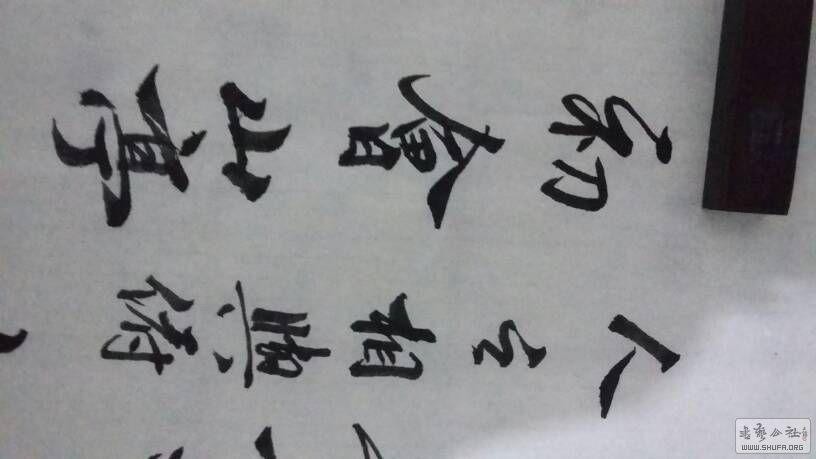 人之相與俯
初會山亭
書藝公社
WWW.SHUFA.ORG